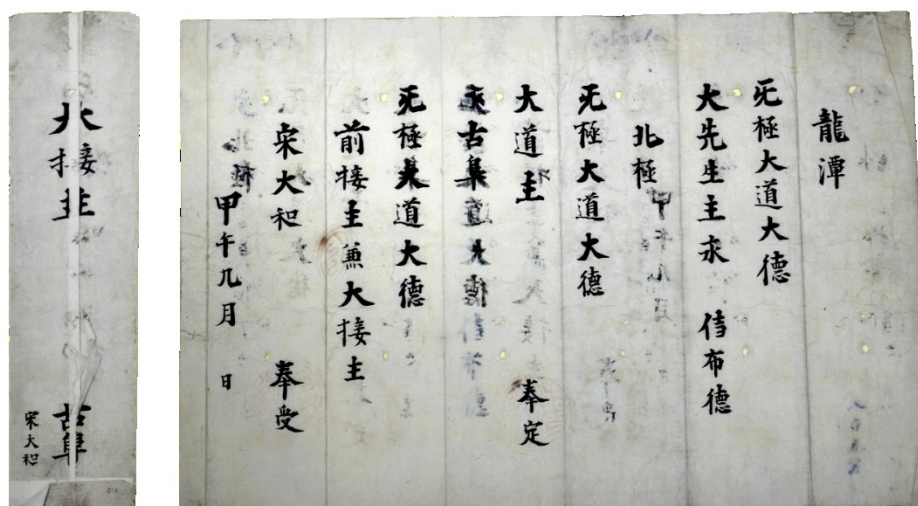 龍潭
无極大道大德
大先生主永 侍布德
北極
无極大道大德
大道主 奉定
古阜
无極大道大德
前接主兼大接主
宋大和 奉受
甲午九月 日
大接主 古阜
宋大和